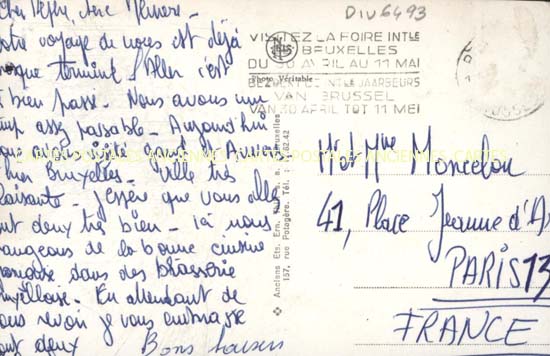 DIV6493
votre voyage de noces est déjà
presque terminé. Allen s'est
bien passé. Nous avons un
temps assez passable. Aujourd'hui
nous avons visité avant d'arriver
Bruxelles. Ville très
plaisante. J'espère que vous allez
tout deux très bien. Ici nous
mangeons de la bonne cuisine
dans des brasserie
bruxelloise. En attendant de
vous revoir je vous embrasse
tout deux
Bons baisers
VISITEZ LA FOIRE INTLE
BRUXELLES
DU 30 AVRIL AU 11 MAI
Photo Véritable
BEZOEKT DE INTLE JAARBEURS
VAN BRUSSEL
VAN 30 APRIL TOT 11 MEI
CARTES POSTALES ANCIENNES
Anciens Ets. Ern. Thill, s. a., Bruxelles
157, rue Potagère. Tél. :
M. et Mme Moncelon
41, Place Jeanne d'A
PARIS 13
FRANCE